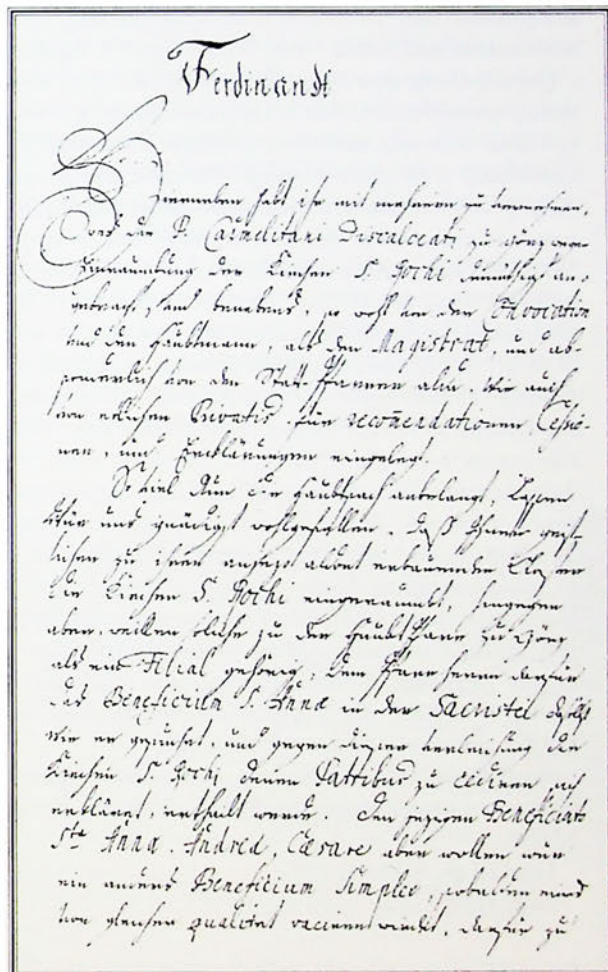 Ferdinandt
Hierneben habt ihr mit mehrern zu vernehmen,
was die P. Carmelitani Discalceati zu Görz wegen
Einraumbung der Kirchen S. Rochi demüthigst an-
gebracht, und benebens, so wohl von der Convocation
und den Haubtmann, als den Magistrat, und ab-
sonderlich von den Statt-Pfarrern alda, wie auch
von etlichen Privatis für recom̄endationen Cessio-
nen, und Erklärungen eingelegt.
So viel nun die Haubtsach anbelangt, lassen
Wür uns gnädigst wohlgefallen, daß Ihnen geist-
lichen zu ihren anjezo aldort erbauenden Closter
die Kirchen S. Rochi eingeraumbt, hingegen
aber, weillen solche zu der Haubt Pfarr zu Görz
als ein Filial gehörig, dem Pfarrherrn darfür
das Beneficium S. Annæ in der Sacristei daselbst
wie er gesuchet, und gegen dieser verleihung die
Kirchen S. Rochi denen Pattibus zu cediren sich
erkläret, ertheilt werde. Den jezigen Beneficiato
Stæ Annæ, Andrea, Cæsare aber wollen wür
ein anders Beneficium Simplex, sobalden eines
von gleicher qualitet vacieren wirdet, darfür zu